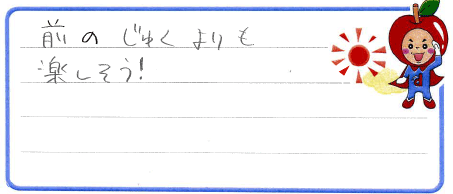 前のじゅくよりも
楽しそう!